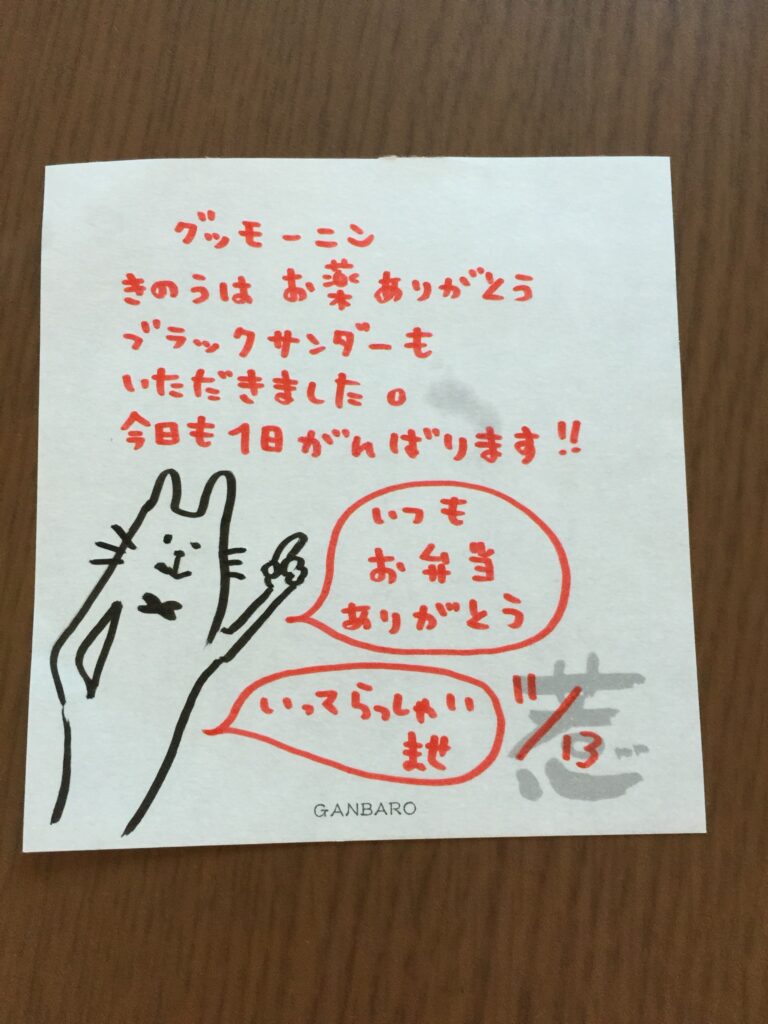 グッモーニン
きのうは お薬 ありがとう
ブラックサンダーも
いただきました。
今日も1日がんばります!!
いつも
お弁当
ありがとう
いってらっしゃい
ませ
11/13
惹
GANBARO